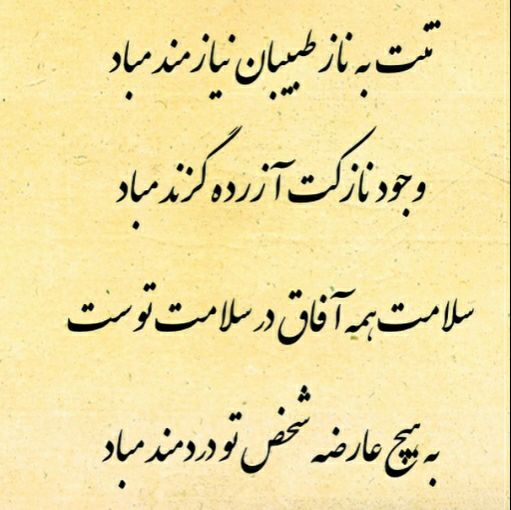 تنت به ناز طبیبان نیازمند مباد
وجود نازکت آزرده گزند مباد
سلامت همه آفاق در سلامت توست
به هیچ عارضه شخص تو دردمند مباد